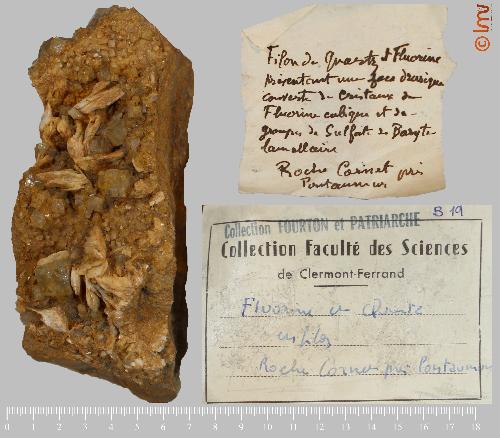 Filon de Quartz et Fluorine
présentant une face drusique
couverte de cristaux de
Fluorine cubique et de
groupes de Sulfate de Baryte
lamellaire
Roche Cornet près
Pontaumur
B 19
Collection FOURTON et PATRIARCHE
Collection Faculté des Sciences
de Clermont-Ferrand
Fluorine et
Roche Cornet près Pontaumur
0 1 2 3 4 5 6 7 8 9 10 11 12 13 14 15 16 17 18
© lmv